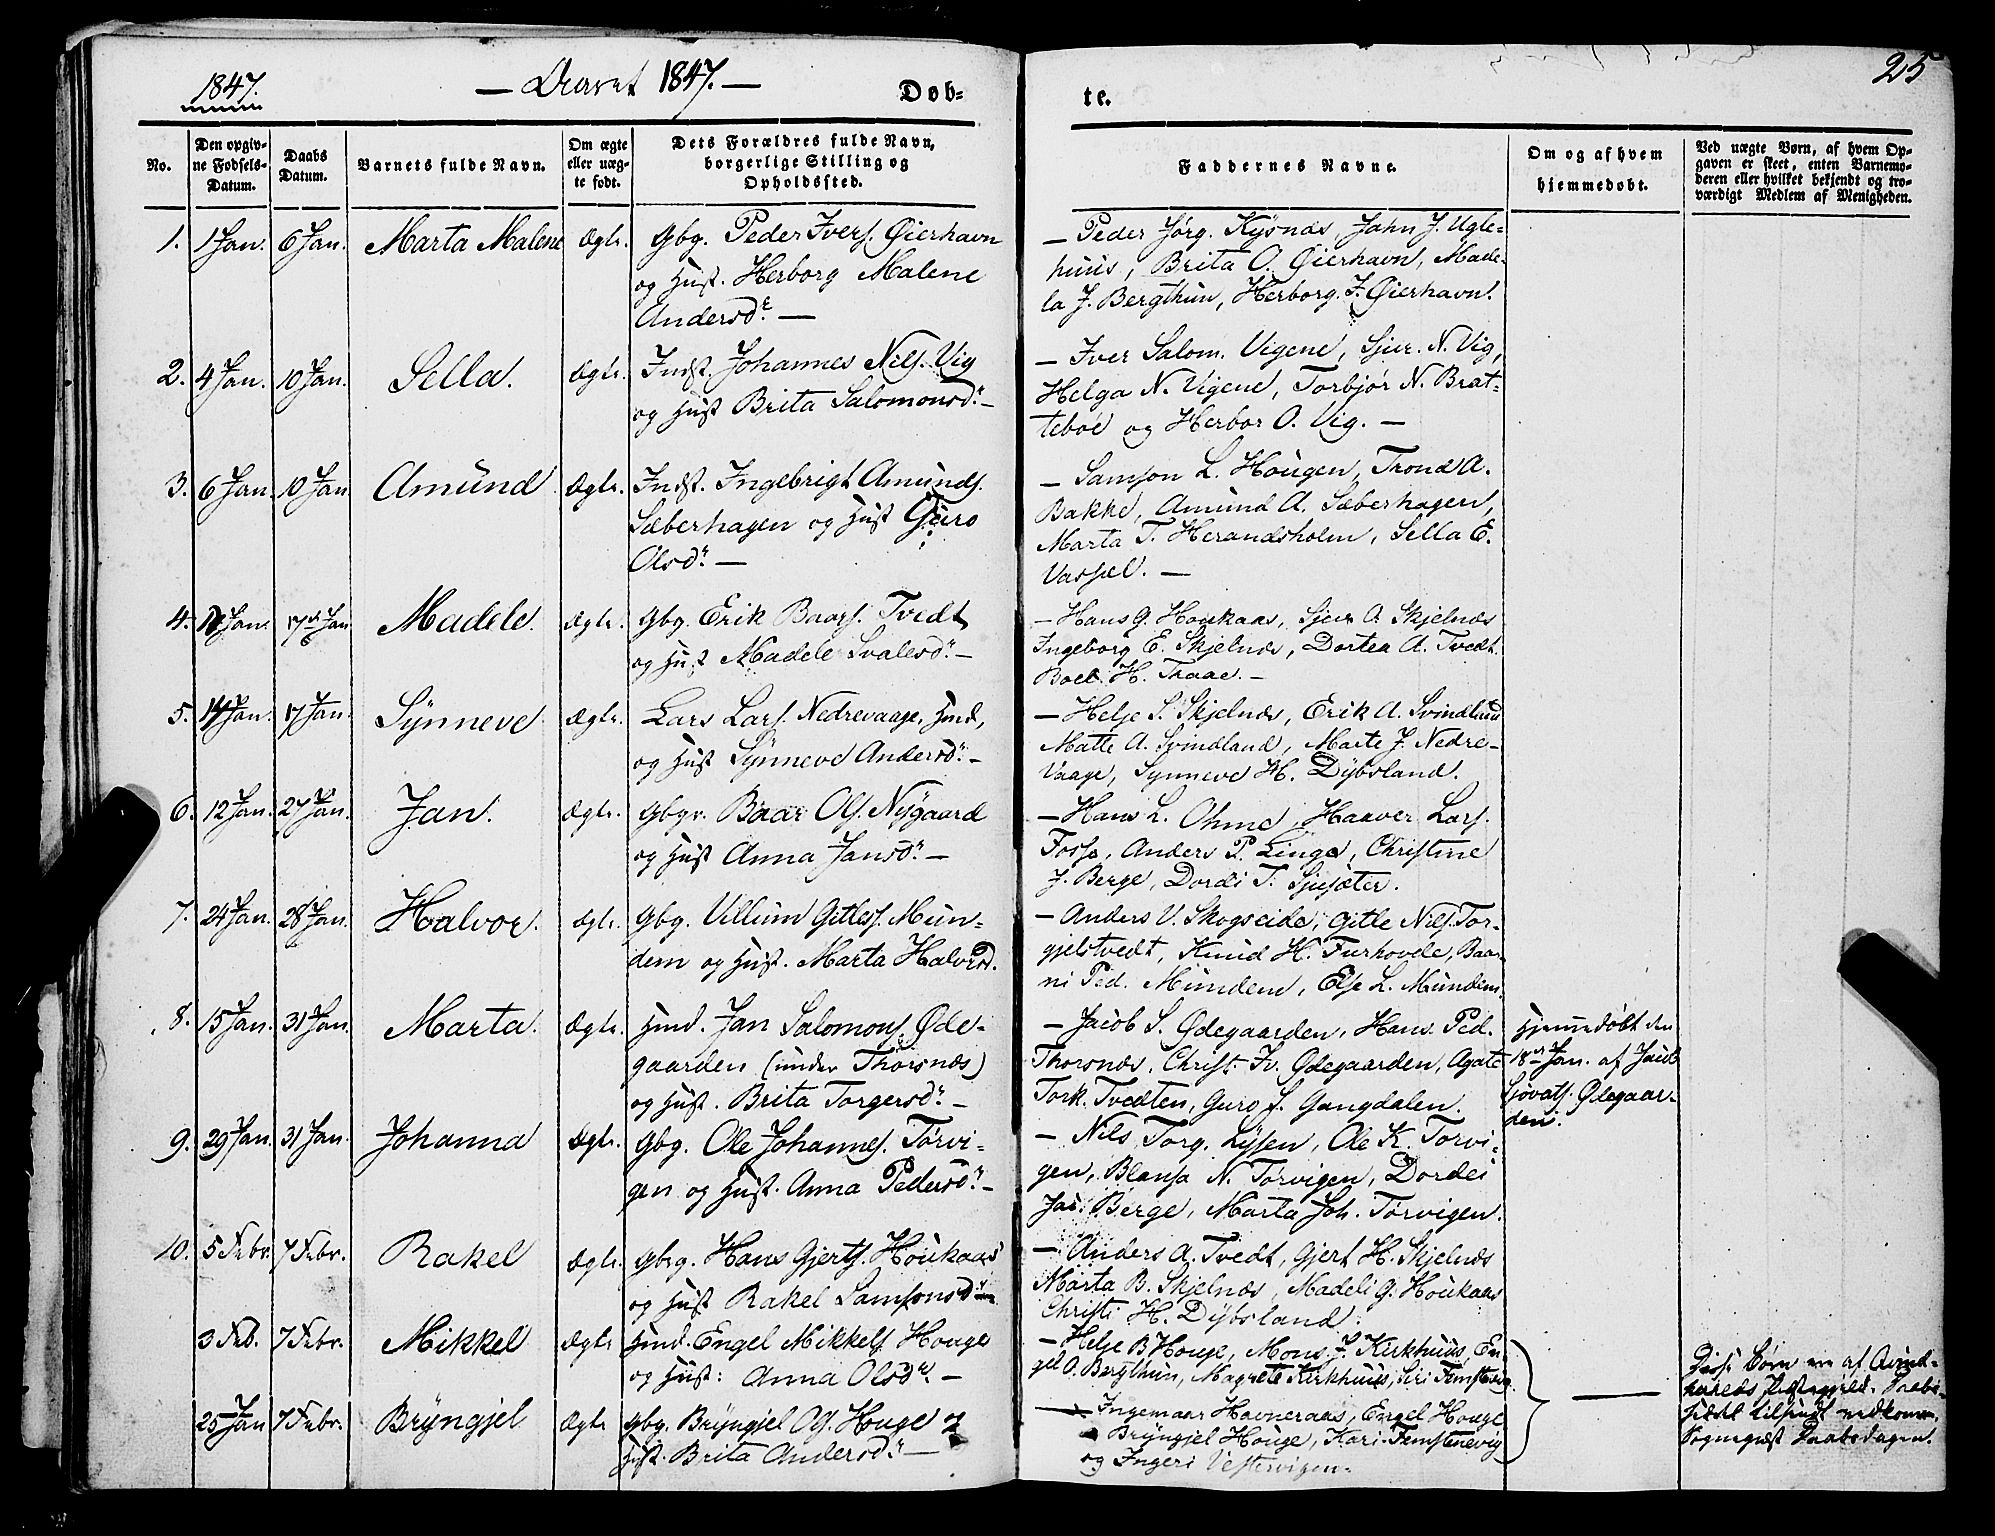 1847.
— Aaret 1847. —
Dob-
te.
25
No.
Den opgiv-
ne Fødsels-
Datum.
Daabs
Datum.
Barnets fulde Navn.
Om ægte
eller uæg-
te født.
Dets Forældres fulde Navn,
borgerlige Stilling og
Opholdssted.
Faddernes Navne.
Om og af hvem
hjemmedøbt.
Ved uægte Børn, af hvem Op-
gaven er skeet, enten Barnemo-
deren eller hvilket bekjendt og tro-
værdigt Medlem af Menigheden.
1. 1 Jan. 6 Jan. Marta Malene Ægte. Gbg. Peder Ivers. Øierhavn
og Hust. Herborg Malene
Andersdr. —
— Peder Jørg. Kysnæs, John J. Ugle-
huus, Brita O. Øierhavn, Made-
la J. Bergthun, Herborg J. Øierhavn.
2. 4 Jan. 10 Jan. Sella. Ægte. Indst. Johannes Nils. Vig
og Hust Brita Salomonsdr. —
— Iver Salom. Vigene, Sjur. N. Vig,
Helga N. Vigene, Torbjør N. Brat-
tebøe og Herbor O. Vig. —
3. 6 Jan. 10 Jan Amund Ægte. Indst. Ingebrigt Amunds.
Sæberhagen og Hust Guro
Olsdr. —
— Samson L. Hougen, Trond A.
Bakke, Amund A. Sæberhagen,
Marta T. Herandsholm, Sella E.
Vassel. —
4. Jan. 17de Jan Madele. Ægte. Gbg. Erik Baars. Tvedt
og Hust Madele Svalesdr. —
— Hans G. Houkaas, Sjur A. Skjelnæs
Ingeborg E. Skjelnæs, Dortea A. Tvedt.
Boel. H. Traae. —
5. 14 Jan. 17 Jan. Synneve Ægte. Lars Lars. Nedrevaage, Hmd,
og Hust Synneve Andersdr. —
— Helje S. Skjelnæs, Erik A. Svindland
Matte A. Svindland, Marte J. Nedre-
Vaage, Synneve H. Dybsland.
6. 12 Jan. 27 Jan. Jan. Ægte. Gbgr. Baar Ols. Nygaard
og Hust Anna Jansdr. —
— Hans L. Ohme, Haaver Lars.
Fosse, Anders P. Linga, Christine
J. Berge, Dordi T. Sjusæter.
7. 24 Jan. 28 Jan. Halvor. Ægte. Gbg. Villum Gitless. Mun-
dem og Hust. Marta Halvrsd.
— Anders V. Skogseide, Gitle Nils. Tor-
gjelstvedt, Knud H. Furhovde, Baar-
ni Ped. Mundem, Else L. Mundem.
8. 15 Jan. 31 Jan. Marta. Ægte. Hmd. Jan Salomons. Øde-
gaarden (under Thorsnæs)
og Hust. Brita Torgersdr. —
— Jacob S. Ødegaarden, Hans Ped.
Thorsnæs, Christ. Iv. Ødegaarden, Agate
Tork. Tvedten, Guro S. Gangdalen.
Hjemmedøbt den
18de Jan. af Jacob
Sjovats. Ødegaar-
den.
9. 29 Jan. 31 Jan. Johanna Ægte. Gbg. Ole Johannes. Torvi-
gen og Hust. Anna Pedersdr. —
— Nils Torg. Lysen, Ole K. Torvi-
gen, Blansa N. Torvigen, Dordei
Jac. Berge, Marta Joh. Torvigen.
10. 5 Febr. 7 Febr. Rakel Ægte. Gbrg. Hans Gjerts. Houkaas
og Hust Rakel Samsonsdr
— Anders A. Tvedt, Gjert H. Skjelnæs
Marta B. Skjelnæs, Madeli G. Houkaas
Christi H. Dybsland.
3 Feb. 7 Febr. Mikkel Ægte Hmd. Engel Mikkels Houge
og Hust: Anna Olsdr. —
— Helje B Houge, Mons J. Kirkhuus, En-
gel O. Bergthun, Magrete Kirkhuus, Siri Femstevig
25 Jan 7 Febr. Bryngjel Ægte Gbg. Bryngjel Ols. Houge og
Hust. Brita Andersdr. —
Ingemaar Havneraas, Engel Houge
Bryngjel Houge, Kari Femstenevig
og Ingeri Vestervigen.
Disse Børn ere af Qvind-
hæreds Præstegjeld. Daabs-
sedel tilsendt vedkom.
Sognepræst Daabsdagen.